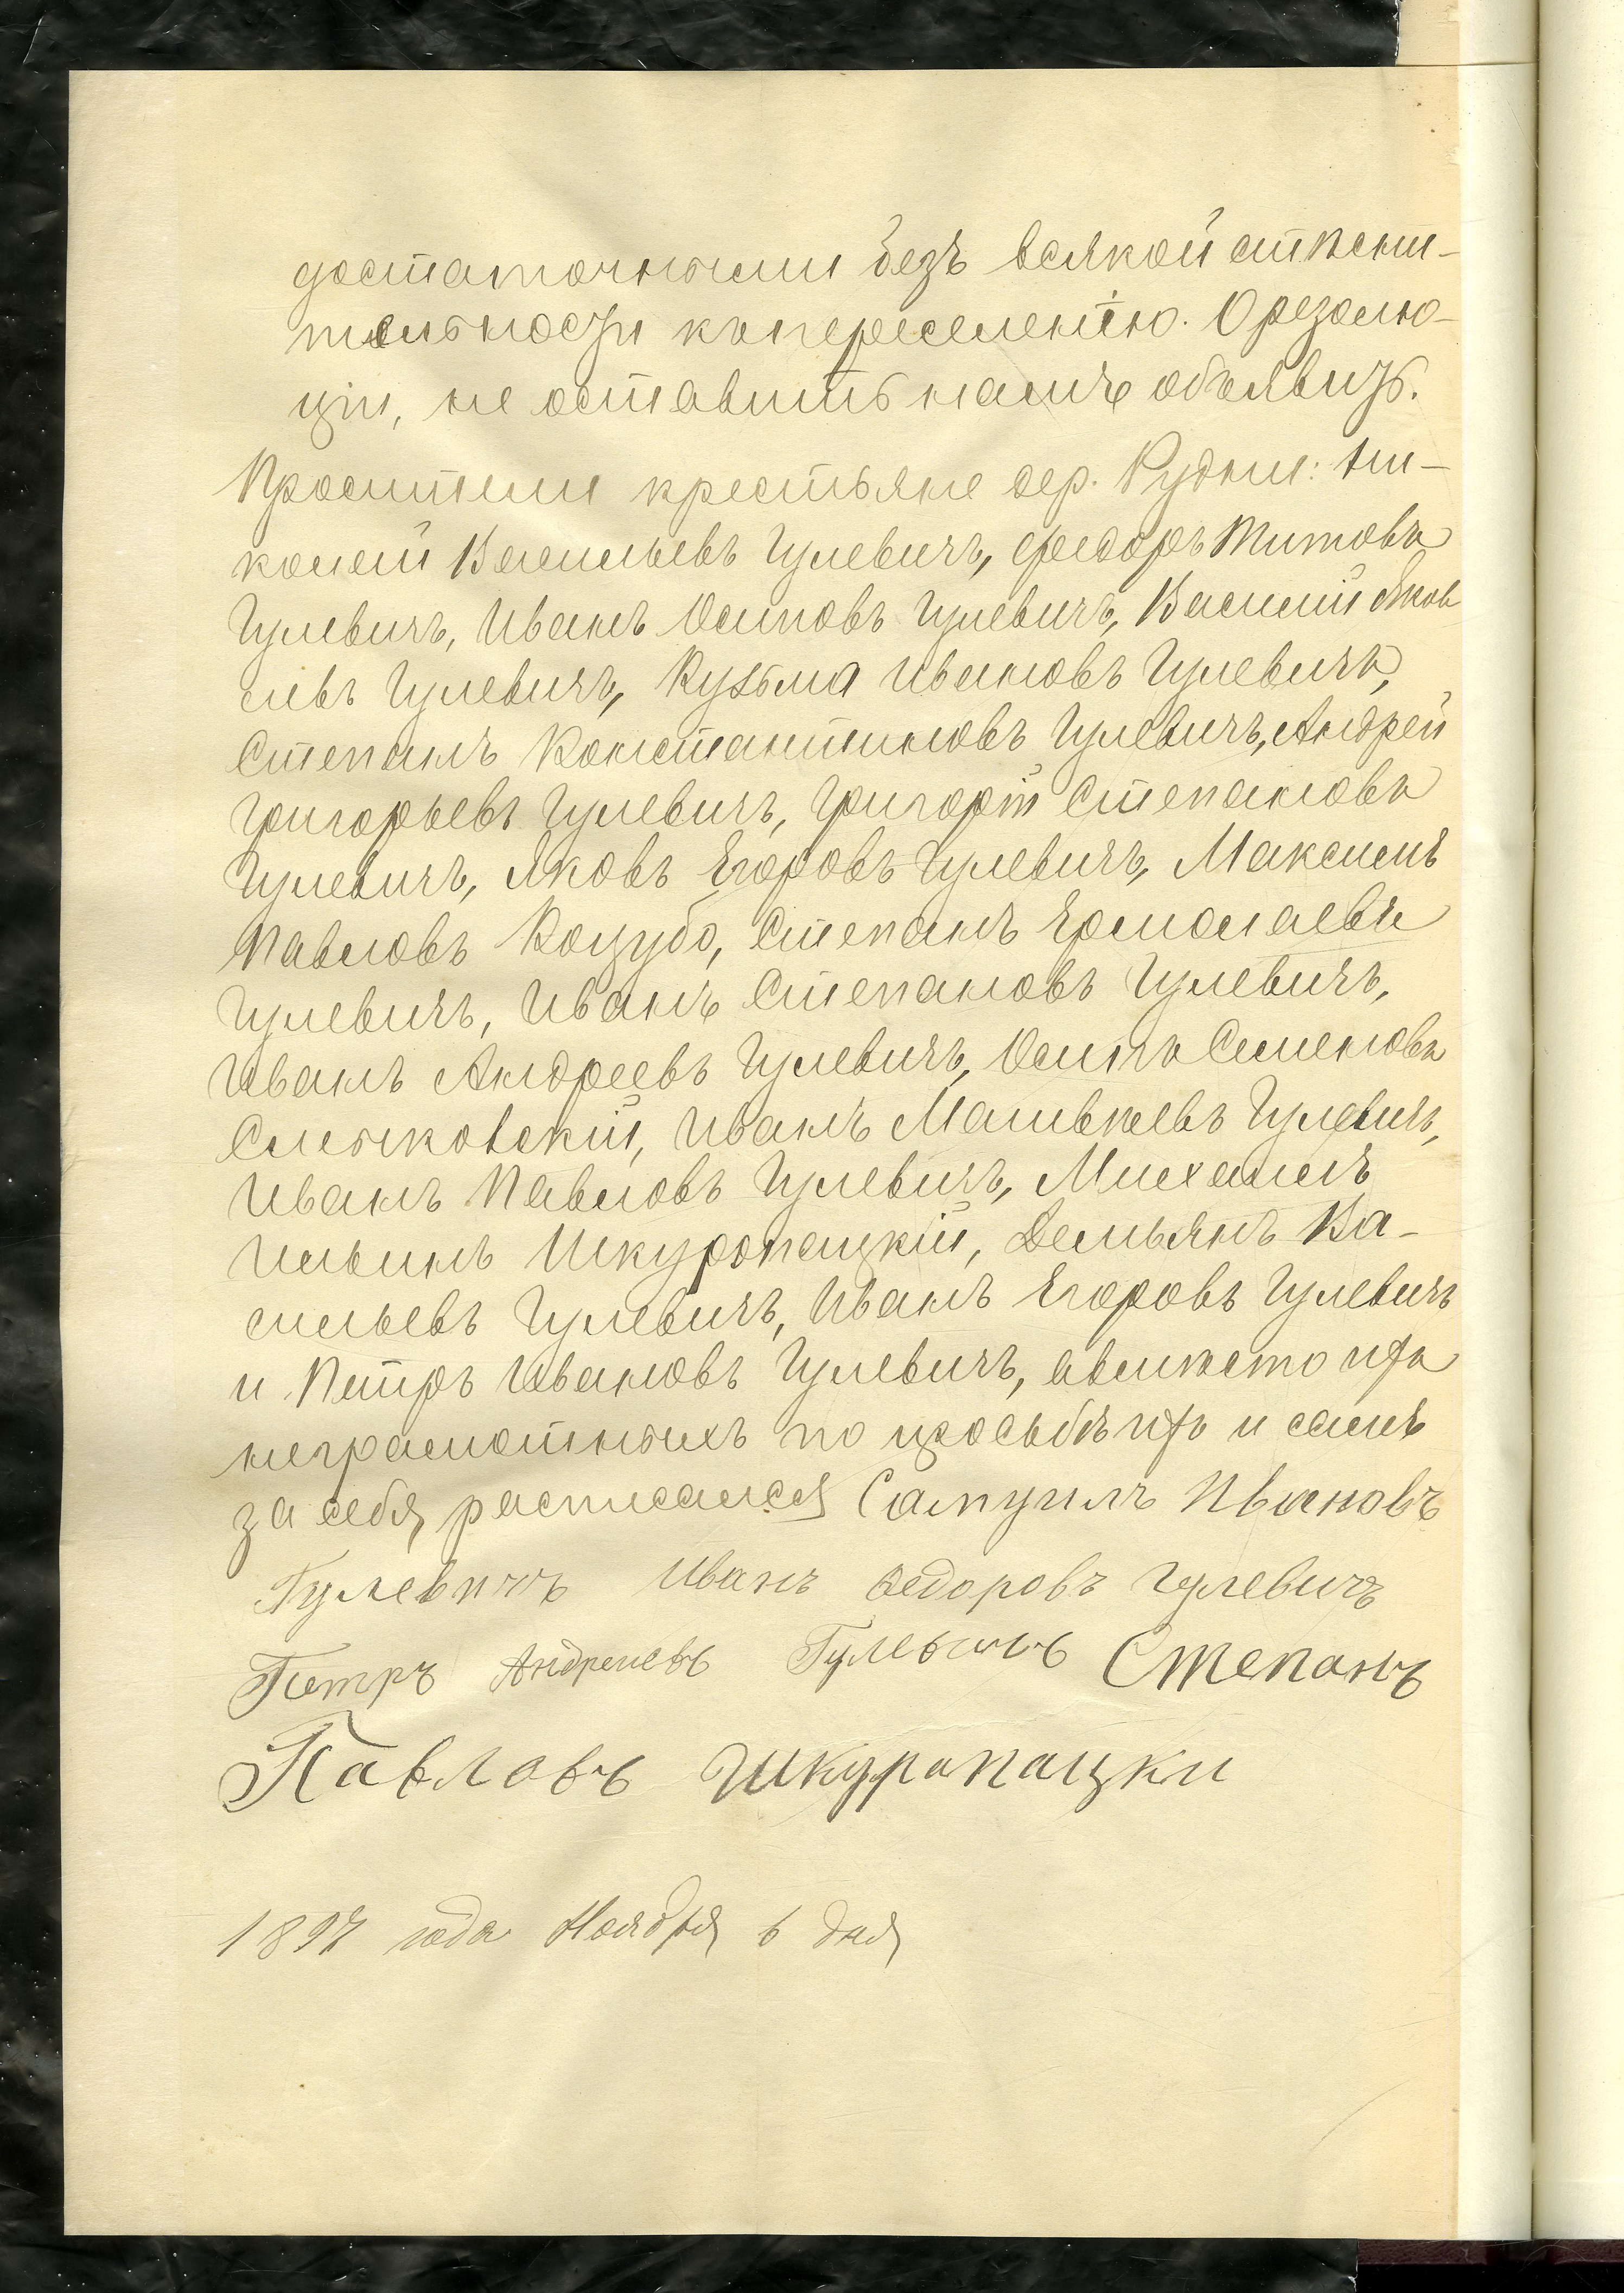 достаточными безъ всякой стѣсни-
тельности къ переселенію. О резолю-
ціи, не оставить намъ объявить.
Просители крестьяне дер. Рудни: Ни-
колай Васильевъ Гулевичъ, Федоръ Титовъ
Гулевичъ, Иванъ Осиповъ Гулевичъ, Василій Яков
левъ Гулевичъ, Кузьма Ивановъ Гулевичъ,
Степанъ Константиновъ Гулевичъ, Андрей
Григорьевъ Гулевичъ, Григорій Степановъ
Гулевичъ, Яковъ Егоровъ Гулевичъ, Максимъ
Павловъ Коцубо, Степанъ Ермолаевъ
Гулевичъ, Иванъ Степановъ Гулевичъ,
Иванъ Андреевъ Гулевичъ, Осипъ Семеновъ
Смычковскій, Иванъ Матвѣевъ Гулевичъ,
Иванъ Павловъ Гулевичъ, Михаилъ
Ильинъ Шкуропацкій, Демьянъ Ва-
сильевъ Гулевичъ, Иванъ Егоровъ Гулевичъ
и Петръ Ивановъ Гулевичъ, а вмѣсто ихъ
неграмотныхъ по просьбѣ ихъ и самъ
за себя росписался Самуилъ Ивановъ
Гулевичъ Иванъ Федоровъ Гулевичъ
Петръ Андреевъ Гулевичъ Степанъ
Павловъ Шкуропацки
1897 года Ноября 6 дня